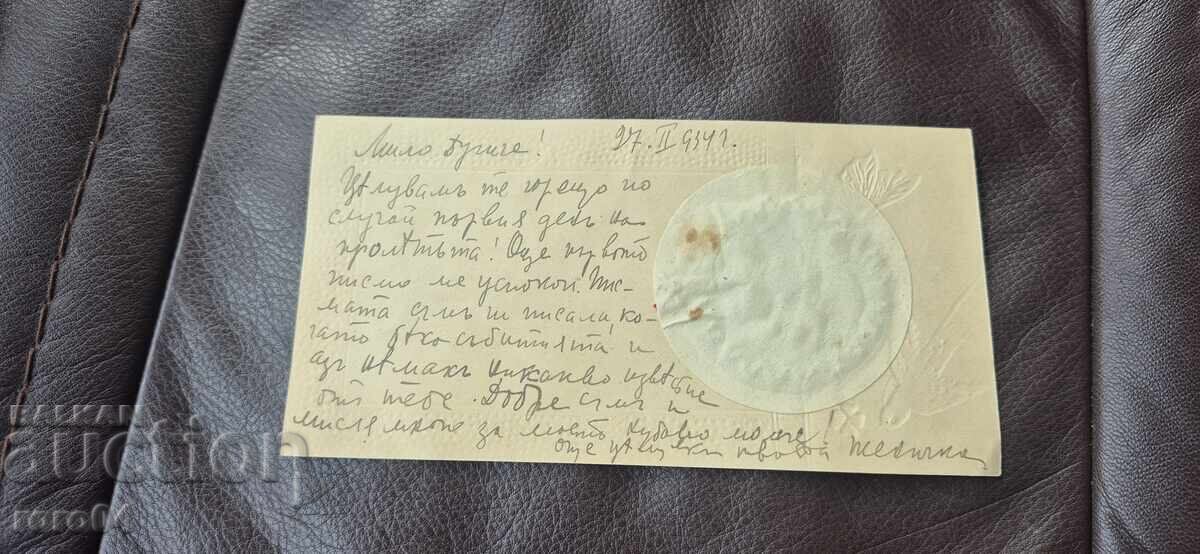 Мило Дугиче! 27. II 934 г.
Цѣлувамъ те горещо по
случай първия день на
пролѣтьта! Още първото
писмо ме успокои. Пис-
мата съмъ ги писала, ко-
гато бѣха събитията и
азъ нѣмахъ никакво извѣстие
отъ тебе. Добре съмъ и
мисля много за моето хубаво момче!
още цѣлувки твоята Женичка
BALKAN
auction
roro04